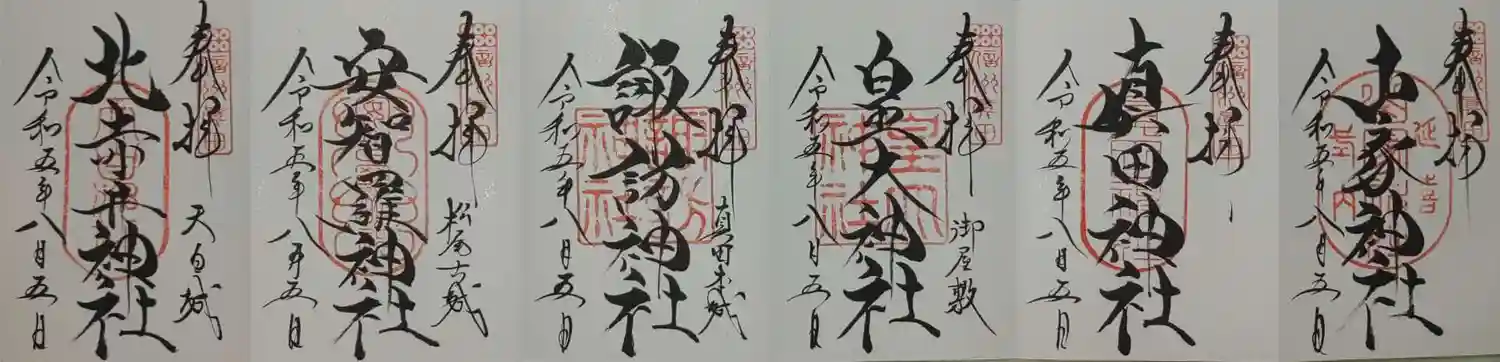 奉拝
天白城
北赤井神社
令和五年八月五日
奉拝
松尾古城
安智羅神社
令和五年八月五日
奉拝
真田本城
諏訪神社
令和五年八月五日
奉拝
御屋敷
皇大神社
令和五年八月五日
奉拝
真田神社
令和五年八月五日
奉拝
山家神社
延喜
式内
令和五年八月五日